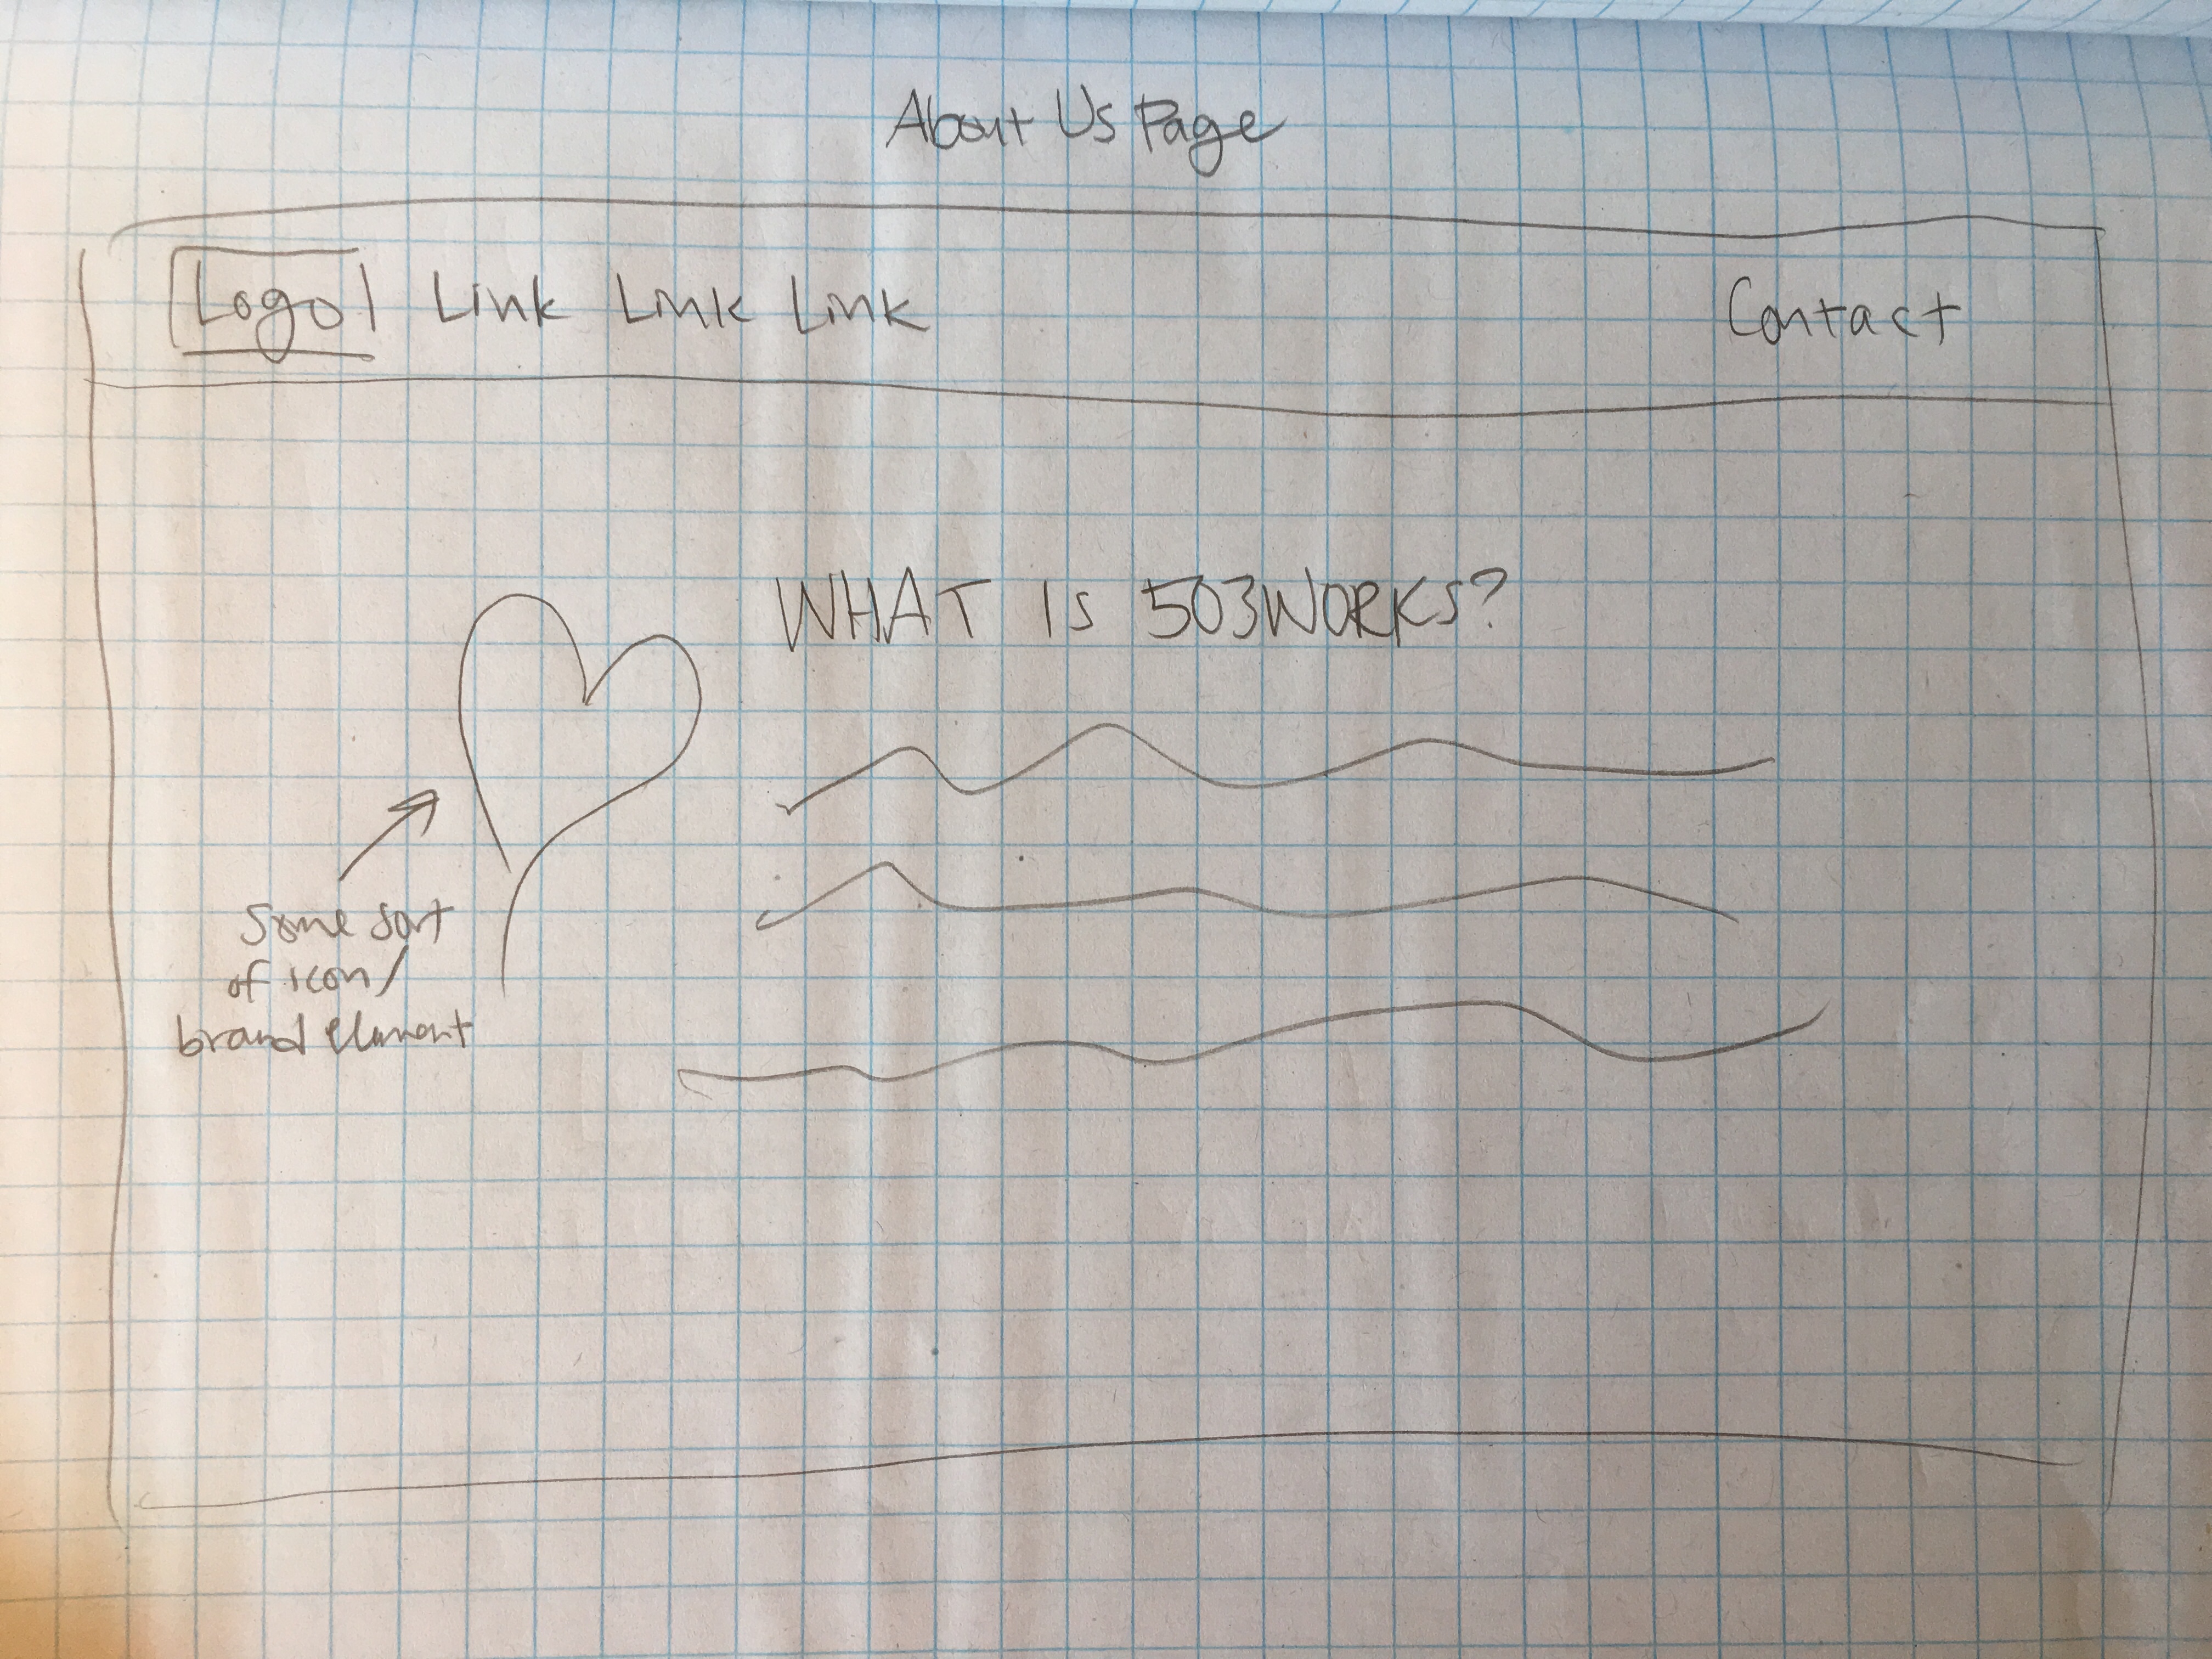 About Us Page
Logo Link Link Link Contact
WHAT IS 503WORKS?
Some sort
of icon/
brand element